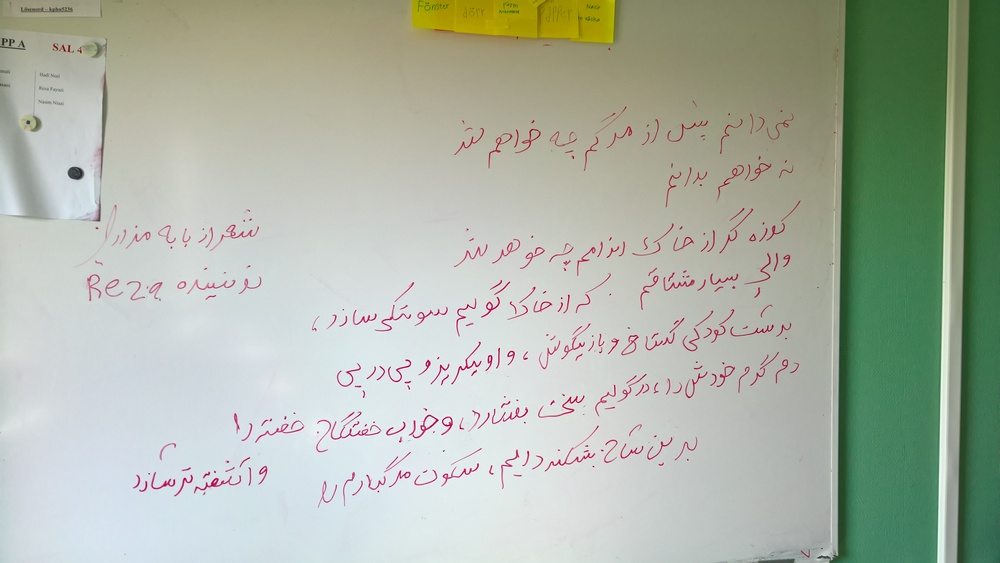 Lösenord - kphu5236
PP A SAL 4
Hadi Nori
Reza Fayazi
Fönster dörr
نمی دانم پس از مرگم چه خواهم شد
نه خواهم بدانم
کوزه گر از خاک اندامم چه خوهد شد
والی بسیار مشتاقم که از خاک گولیم سوتکی سازد،
بدست کودکی گستاخ و بازیگوش، و او یکریز و پی در پی
دم گرم خودش را، در گولیم سخت بفشارد، و خواب خفتگاح خفته را
و آشفته تر سازد
بدین سان بشکند دایم، سکوت مرگبارم را
شعر از بابه مزاری
نویسنده Reza